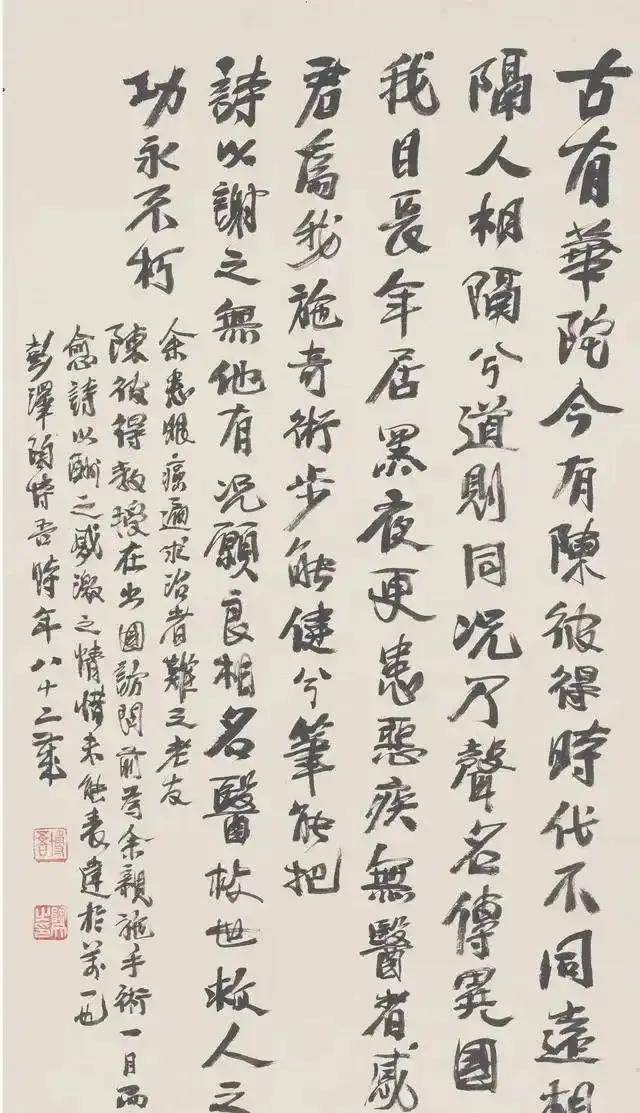 古有華陀今有陳彼得時代不同遠相
隔人相隔兮道則同况乃聲名傳異國
我目長年居黑夜更患惡疾無醫者感
君爲我施奇術步能健兮筆能把
詩以謝之無他有况願良相名醫救世救人之
功永不朽
余患眼癌遍求治者難之老友
陳彼得教授在出國訪問前為余親施手術一月而
愈詩以酬之感激之情惜未能表達於萬一也
彭澤陶博吾時年八十二歲
博吾